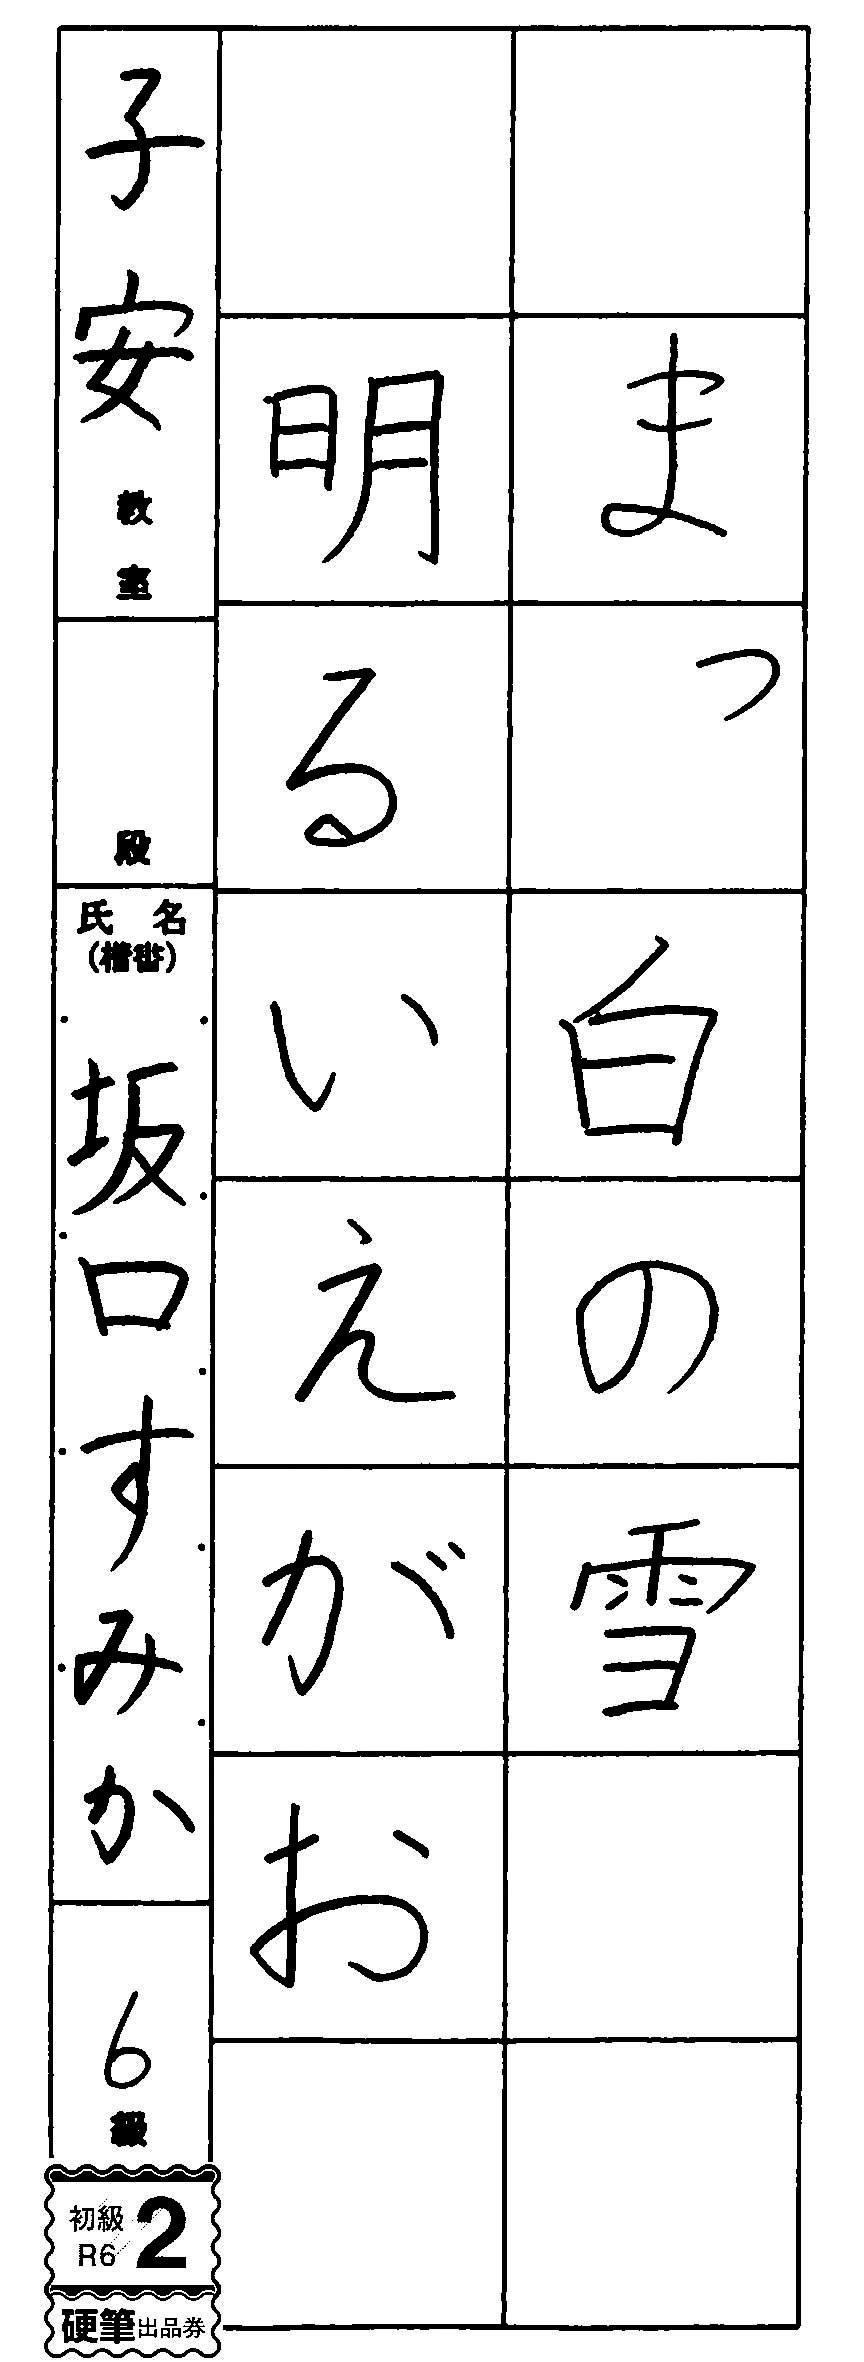 まっ白の雪
明るいえがお
子安教室
段
氏名
(楷書)
坂口すみか
6級
初級
R6
2
硬筆出品券